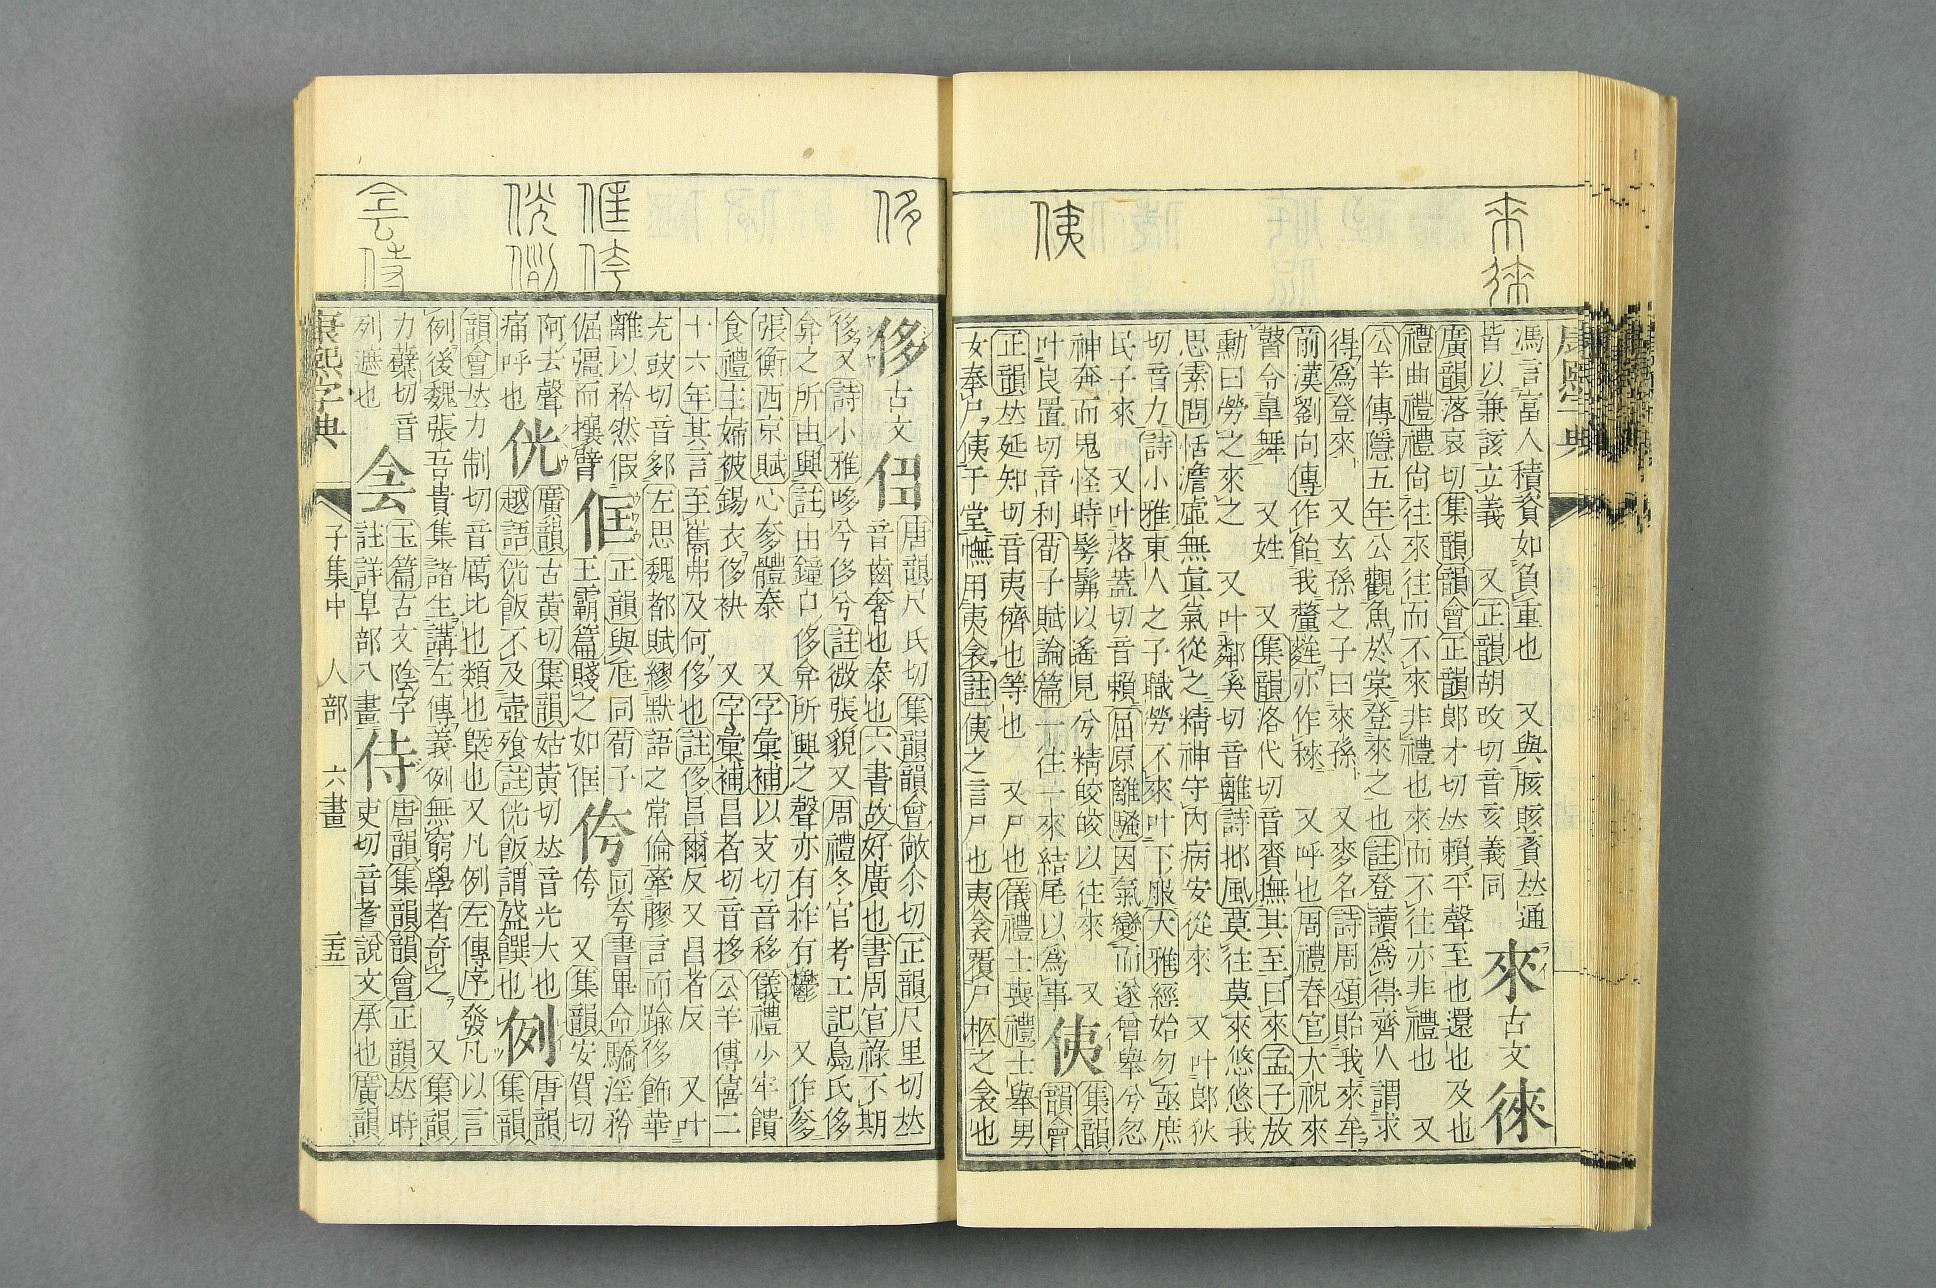 康熙字典
來徠
侇
馮言富人積資如負重也 又與胲賅賌𠀤通
皆以兼該立義 又正韻胡改切音亥義同
來古文徠
廣韻落哀切集韻韻會正韻郎才切𠀤賴平聲至也還也及也
禮曲禮禮尚往來往而不來非禮也來而不往亦非禮也 又
公羊傳隱五年公觀魚於棠登來之也註登讀為得齊人謂求
得爲登來 又玄孫之子曰來孫 又麥名詩周頌貽我來牟
前漢劉向傳作飴我釐麰亦作秾 又呼也周禮春官大祝來
瞽令皐舞 又姓 又集韻洛代切音賚撫其至曰來孟子放
勳曰勞之來之 又叶鄰奚切音離詩邶風莫往莫來悠悠我
思素問恬澹虛無眞氣從之精神守內病安從來 又叶郎狄
切音力詩小雅東人之子職勞不來叶下服大雅經始勿亟庶
民子來 又叶落蓋切音賴屈原離騷因氣變而遂曾舉兮忽
神奔而鬼怪時髣髴以遙見兮精皎皎以往來 又
叶良置切音利荀子賦論篇一往一來結尾以爲事
侇集韻韻會
正韻𠀤延知切音夷儕也等也 又尸也儀禮士喪禮士舉男
女奉尸侇于堂幠用夷衾註侇之言尸也夷衾覆尸柩之衾也
侈
侹侉
侊例
侌侍
侈古文㐵
唐韻尺氏切集韻韻會敞尒切正韻尺里切𠀤
音齒奢也泰也六書故好廣也書周官祿不期
侈又詩小雅哆兮侈兮註微張貌又周禮冬官考工記鳧氏侈
弇之所由興註由鐘口侈弇所興之聲亦有柞有鬱 又作奓
張衡西京賦心奓體泰 又字彙補以支切音移儀禮少牢饋
食禮主婦被錫衣侈袂 又字彙補昌者切音撦公羊傳僖二
十六年其言至巂弗及何侈也註侈昌爾反又昌者反 又叶
充豉切音𨛦左思魏都賦繆默語之常倫牽膠言而踰侈飾華
離以矜然假
倔彊而攘臂
俇
正韻與尩同荀子
王霸篇賤之如俇
侉
同夸書畢命驕淫矜
侉 又集韻安賀切
阿去聲
痛呼也
侊
廣韻古黃切集韻姑黃切𠀤音光大也
越語侊飯不及壺飱註侊飯謂盛饌也
例
唐韻集韻
韻會𠀤力制切音厲比也類也槩也又凡例左傳序發凡以言
例後魏張吾貴集諸生講左傳義例無窮學者奇之 又集韻
力蘖切音
列遮也
侌
玉篇古文陰字
註詳阜部八畫
侍
唐韻集韻韻會正韻𠀤時
吏切音耆說文承也廣韻
康熙字典 子集中 人部 六畫 二五